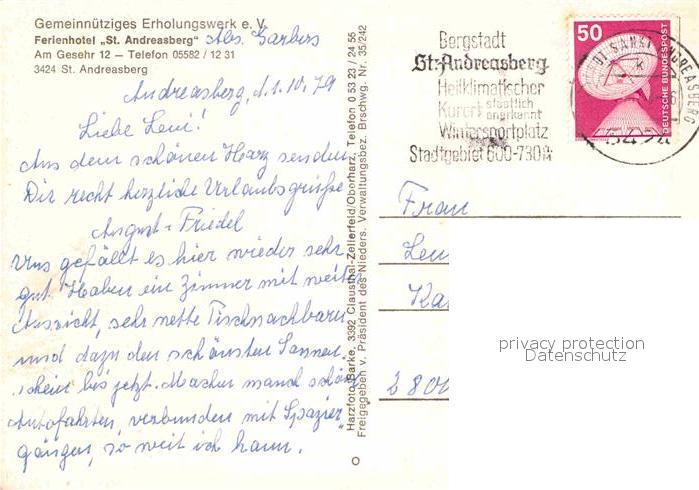 Gemeinnütziges Erholungswerk e. V.
Ferienhotel „St. Andreasberg" Abs. Garbers
Am Gesehr 12 — Telefon 05582 / 12 31
3424 St. Andreasberg
Andreasberg, d. 1.10.79
Liebe Leni!
Aus dem schönen Harz senden
Dir recht herzliche Urlaubsgrüße
August + Friedel
Uns gefällt es hier wieder sehr
gut. Haben ein Zimmer mit weiter
Aussicht, sehr nette Tischnachbarn
und dazu den schönsten Sonnen-
schein bis jetzt. Machen manch schöne
Autofahrten, verbunden mit Spazier-
gängen, so weit ich kann.
Harzfoto Barke, 3392 Clausthal-Zellerfeld/Oberharz, Telefon 0 53 23 / 24 56
Freigegeben v. Präsident des Nieders. Verwaltungsbez. Brschwg. Nr. 35/242
Bergstadt
St. Andreasberg
Heilklimatischer
Kurort staatlich
anerkannt
Wintersportplatz
Stadtgebiet 600-730m
50
DEUTSCHE BUNDESPOST
SANKT ANDREASBERG
Frau
Len
Ka
2800
privacy protection
Datenschutz